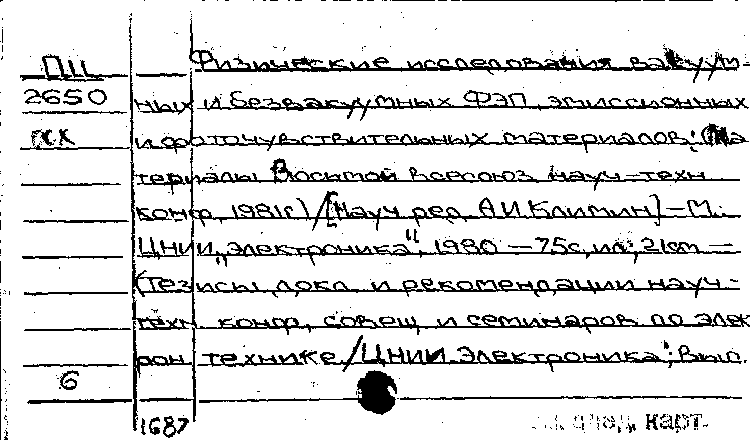 ПЦ
2650
Физические исследования вакуум-
ных и безвакуумных ФЭП, эмиссионных
и фоточувствительных материалов: (Ма
териалы Восьмой всесоюз. науч-техн.
конф, 1981г) / [Науч. ред. А.И. Климин] – М.:
ЦНИИ „Электроника“, 1980 – 75с, ил; 21см –
(Тезисы докл. и рекомендации науч.-
техн. конф, совещ и семинаров по элек
рон технике / ЦНИИ Электроника; Вып.
6
1687
след. карт.